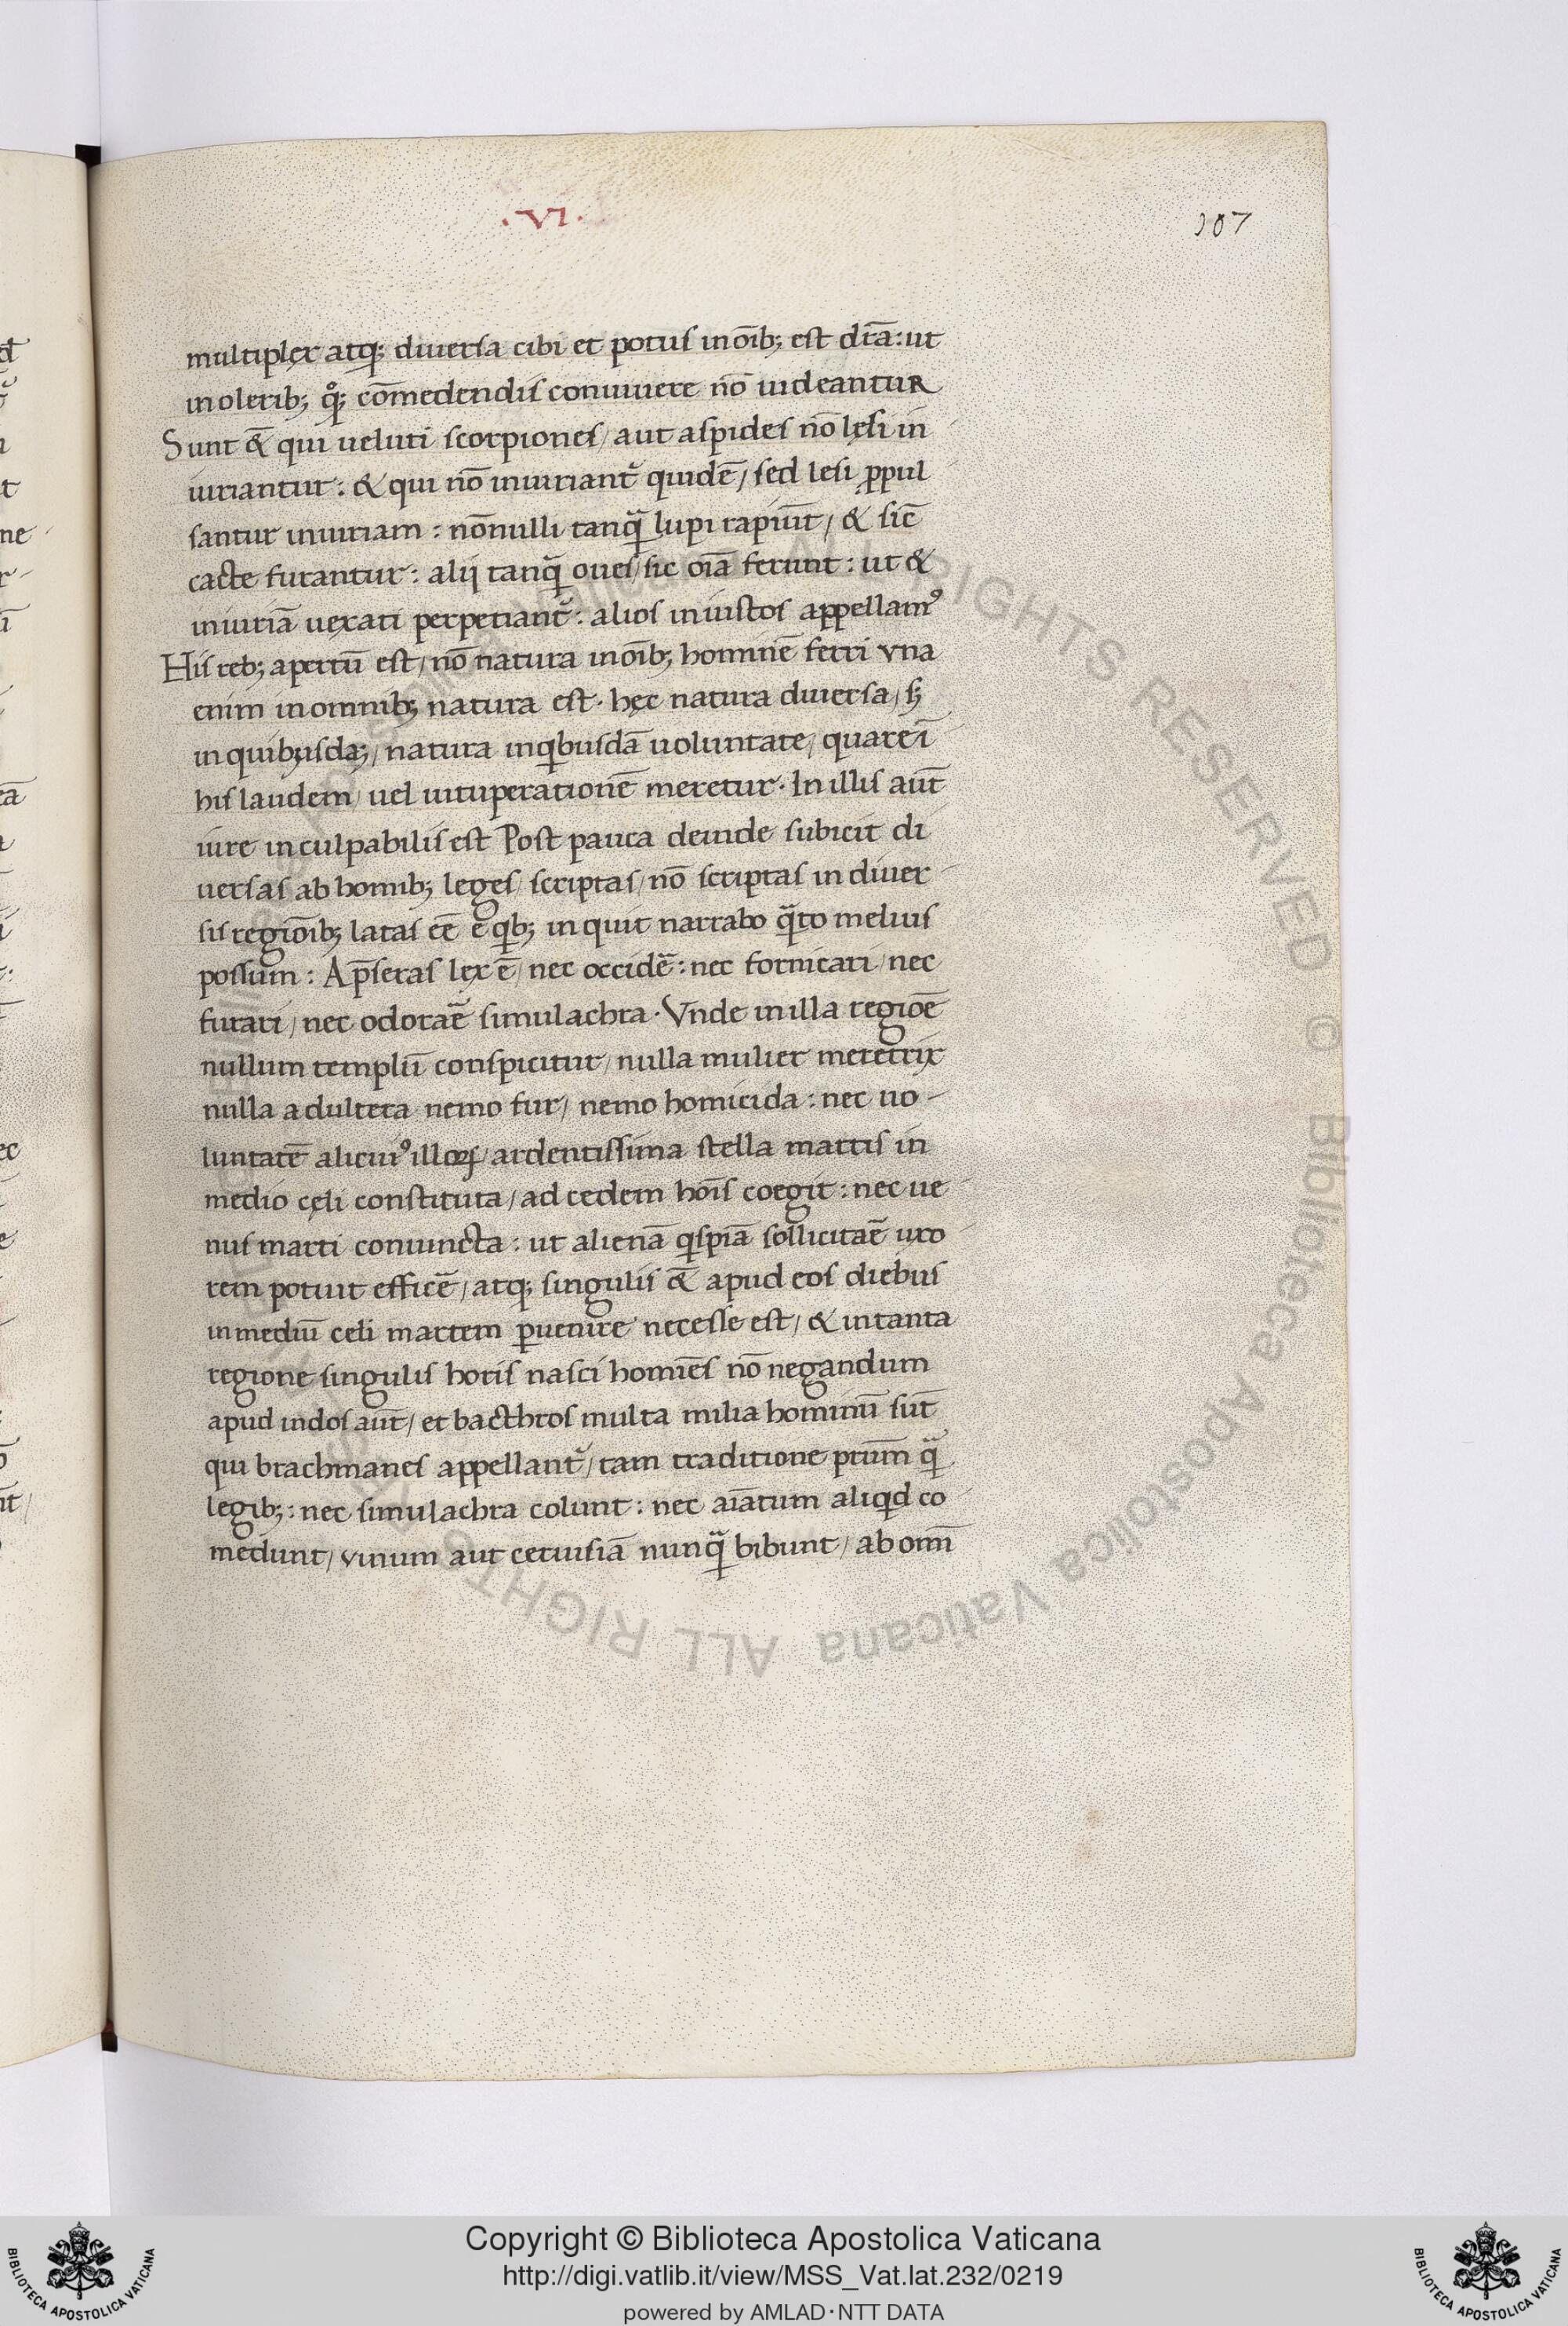 .VI.
107
multiplex atq; diuersa cibi et potus in oīb; est dr̄a: ut
in olerib; q̊; cōmedendis conuiuere nō uideantur
Sunt & qui ueluti scorpiones / aut aspides nō lęsi in
iuriantur: & qui nō iniuriant̄ quidē / sed lesi ꝓpul
santur iniuriam: nōnulli tanq̄ lupi rapiūt / & siē
cacte furantur: alij tanq̄ oues / sic oīa ferunt: ut &
iniuriā uexati perpetiant̄: alios iniustos appellamꝰ
His reb; apertū est / nō natura in oīb; hominē ferri vna
enim in omnib; natura est. hęc natura diuersa / s;
in quibusda; / natura in qibusdā uoluntate / quare ī
his laudem / uel uituperationē meretur. In illis aūt
iure inculpabilis est Post pauca deinde subicit di
uersas ab homib; leges / scriptas / nō scriptas in diuer
sis regiōib; latas eē e qib; inquit narrabo q̄to melius
possum: Ap̄seras lex ē / nec occidē: nec fornicari / nec
furari / nec odoraē simulachra. Vnde in illa regioē
nullum templū conspicitur / nulla mulier meretrix
nulla adultera nemo fur / nemo homicida: nec uo
luntatē alicuiꝰ illoꝝ / ardentissima stella martis in
medio cęli constituta / ad cedem hoīs coegit: nec ue
nus marti coniuncta: ut alienā qispiā sollicitaē uxo
rem potuit efficē / atq; singulis & apud eos diebus
in mediū celi martem ꝑuenire necesse est / & in tanta
regione singulis horis nasci homīes nō negandum
apud indos aūt / et bacthros multa milia hominū sūt
qui brachmanes appellant̄ / tam traditione ptrum̄ q̄
legib; : nec simulachra colunt: nec aīatum aliqid co
medunt / vinum aut ceruisiā nunq̄ bibunt / ab omī
Copyright © Biblioteca Apostolica Vaticana
http://digi.vatlib.it/view/MSS_Vat.lat.232/0219
powered by AMLAD·NTT DATA